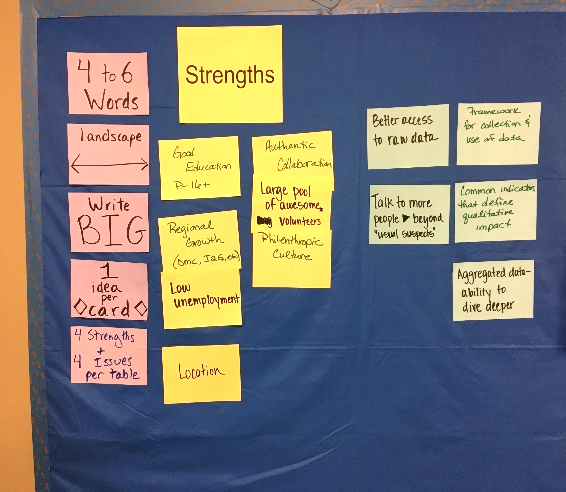 4 to 6
Words
landscape
Write
BIG
1
idea
per
card
4 Strengths
+
4 Issues
per table
Strengths
Good
Education
P-16+
Regional
Growth
(DMC, I2G, etc)
Low
unemployment
Location
Authentic
Collaboration
Large pool
of awesome
volunteers
Philanthropic
Culture
Better access
to raw data
Talk to more
people ▶ beyond
"usual suspects"
Framework
for collection &
use of data
Common indicators
that define
qualitative
impact
Aggregated data-
ability to
dive deeper